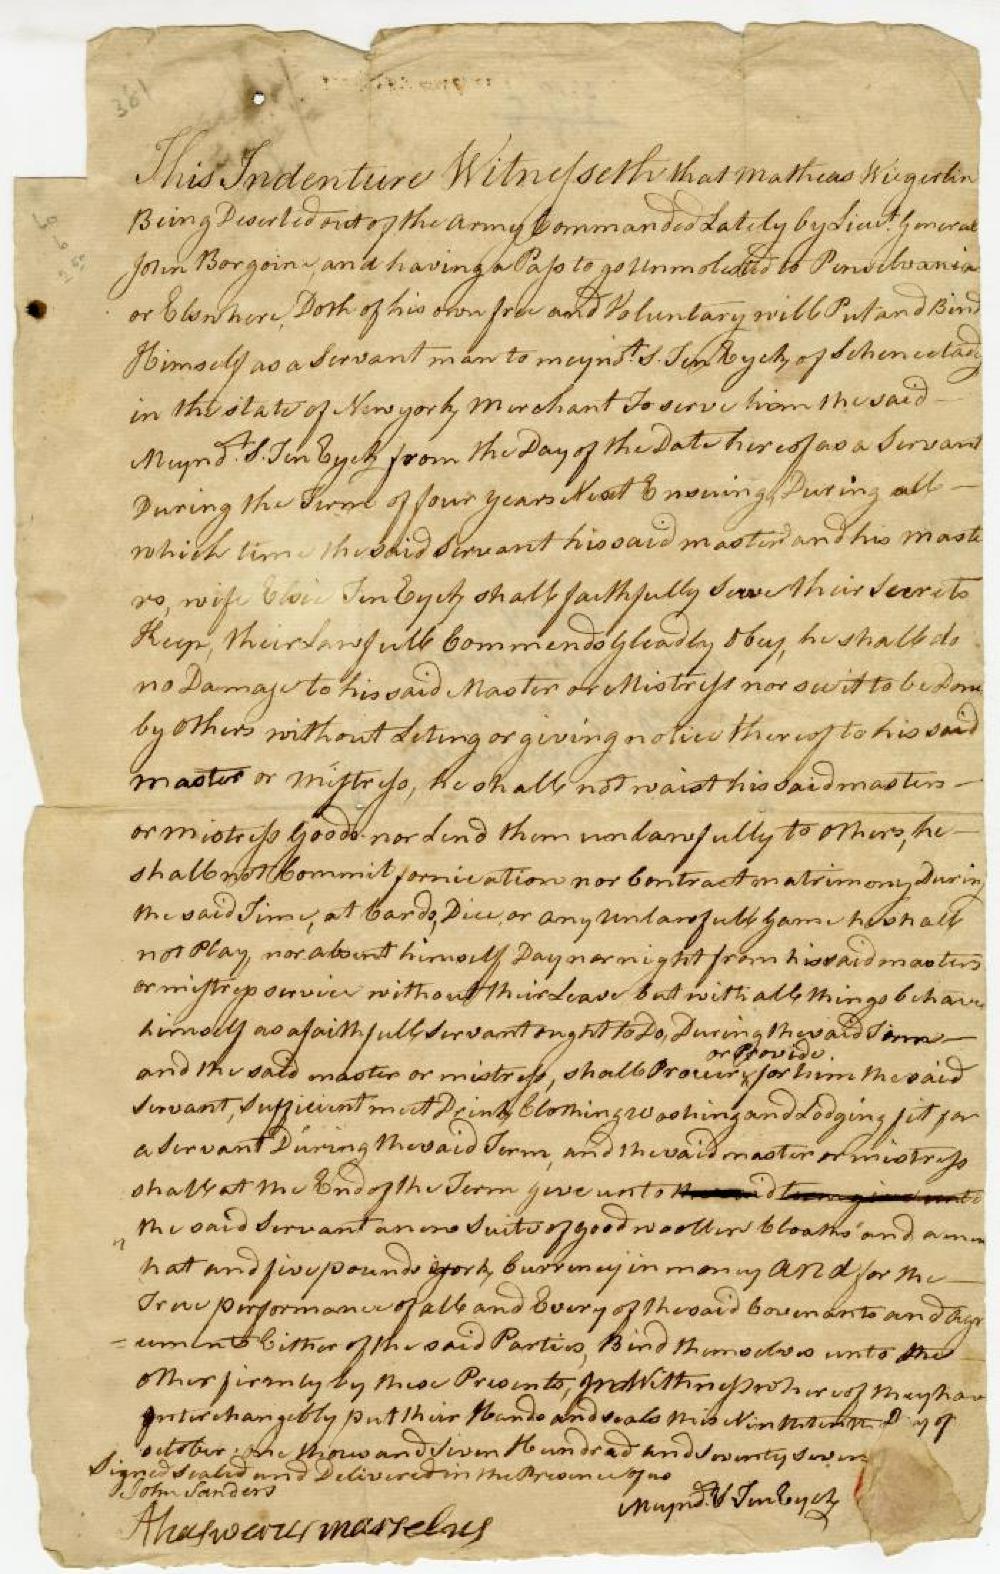 361
This Indenture Witnesseth that Matheas Wiegerlin
Being Deserted out of the Army Commanded Lately by Lieut. General
John Borgoine, and having a Pass to go Unmolested to Pensilvania
or Elsewhere, Doth of his own free and Voluntary will Put and Bind
Himself as a Servant man to Meynd.t S. Ten Eyck of Schenectady
in the state of New york Merchant To serve him the said
Meynd.t S. Ten Eyck from the Day of the Date hereof as a Servant
During the Term of four years Next Ensuing, During all
which time the said servant his said master and his maste
rs, wife Elsie Ten Eyck shall faithfully serve their Secrets
Keep, their Lawfull Commends Gleadly Obey, he shall do
no Damage to his said Master or Mistress nor see it to be Done
by Others without Leting or giving notice thereof to his said
master or Mistress, he shall not waist his said masters
or mistress Goods nor Lend them unlawfully to Others, he
shall not Commit fornication nor Contract matrimony During
the said Time, at Cards, Dice, or any unlawfull Game he shall
not Play, nor absent himself Day nor night from his said masters
or mistress service without their Leave but with all things behave
himself as a faithfull Servant ought to Do, During the said Term
or Provide.
and the said master or mistress, shall Procure for him the said
Servant, Sufficient meet Drink Clothing washing and Lodging fit for
a servant During the said Term, and the said master or mistress
shall at the End of the Term give unto the said term give unto
the said Servant a new Suite of good woollen Cloaths and a new
hat and five pounds york Currency in money and for the
True performance of all and Every of the said Covenants and Agr
= eements Either of the said Parties, Bind themselves unto the
other firmly by these Presents, In Withness whereof they have
Interchangebly put their Hands and seals this Day of
october one thousand Seven Hundrad and Seventy seven
Signed sealed and Delivered in the Presence of us
John Sanders
Meynd.t S Ten Eyck
Ahasweros Marselus